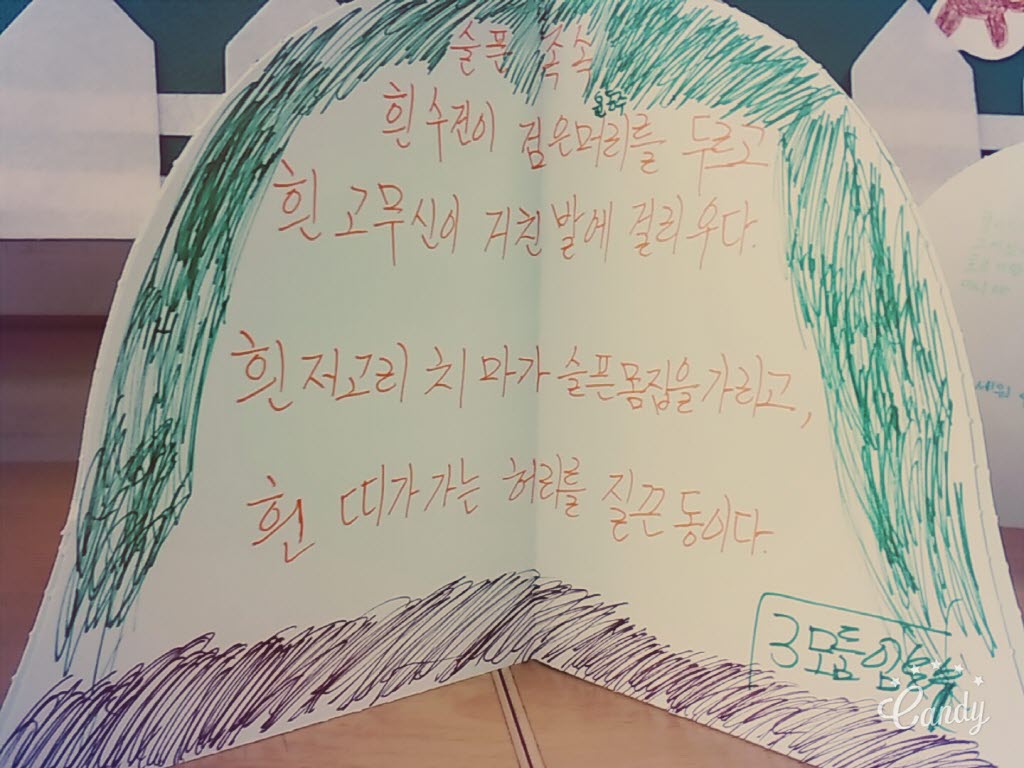 슬픈 족속
윤동주
흰 수건이 검은머리를 두르고
흰 고무신이 거친 발에 걸리우다.
흰 저고리 치마가 슬픈몸집을 가리고,
흰 띠가 가는 허리를 질끈 동이다.
3모둠
Candy